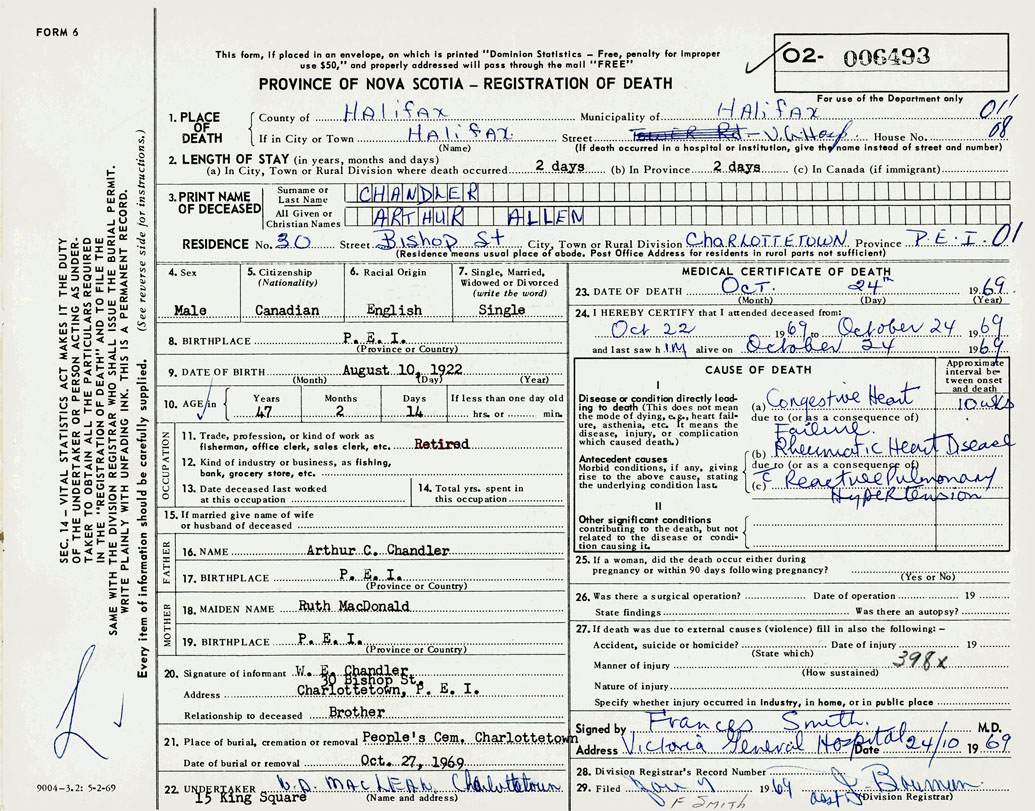 FORM 6
This form, if placed in an envelope, on which is printed "Dominion Statistics – Free, penalty for improper
use $50," and properly addressed will pass through the mail "FREE"
O2- 006493
PROVINCE OF NOVA SCOTIA – REGISTRATION OF DEATH
For use of the Department only
1. PLACE OF DEATH
County of Halifax Municipality of Halifax 01
If in City or Town Halifax Street V.G. Hosp. House No. 08
(Name) (If death occurred in a hospital or Institution, give the name instead of street and number)
2. LENGTH OF STAY (in years, months and days)
(a) In City, Town or Rural Division where death occurred 2 days (b) In Province 2 days (c) In Canada (if immigrant)
3. PRINT NAME OF DECEASED
Surname or Last Name CHANDLER
All Given or Christian Names ARTHUR ALLEN
RESIDENCE No. 30 Street Bishop St City, Town or Rural Division CHARLOTTETOWN Province P.E.I. 01
(Residence means usual place of abode. Post Office Address for residents in rural parts not sufficient)
4. Sex
Male
5. Citizenship
(Nationality)
Canadian
6. Racial Origin
English
7. Single, Married,
Widowed or Divorced
(write the word)
Single
8. BIRTHPLACE P. E. I.
(Province or Country)
9. DATE OF BIRTH August 10, 1922
(Month) (Day) (Year)
10. AGE in
Years Months Days If less than one day old
47 2 14 hrs. or min.
OCCUPATION
11. Trade, profession, or kind of work as
fisherman, office clerk, sales clerk, etc. Retired
12. Kind of industry or business, as fishing,
bank, grocery store, etc.
13. Date deceased last worked
at this occupation
14. Total yrs. spent in
this occupation
15. If married give name of wife
or husband of deceased
FATHER
16. NAME Arthur C. Chandler
17. BIRTHPLACE P. E. I.
(Province or Country)
MOTHER
18. MAIDEN NAME Ruth MacDonald
19. BIRTHPLACE P. E. I.
(Province or Country)
20. Signature of informant W. E. Chandler
30 Bishop St.
Address Charlottetown, P. E. I.
Relationship to deceased Brother
21. Place of burial, cremation or removal People's Cem. Charlottetown
Date of burial or removal Oct. 27, 1969
22. UNDERTAKER MACLEAN Charlottetown
15 King Square (Name and address)
MEDICAL CERTIFICATE OF DEATH
23. DATE OF DEATH Oct. 24th 1969
(Month) (Day) (Year)
24. I HEREBY CERTIFY that I attended deceased from:
Oct 22 1969 to October 24 1969
and last saw him alive on October 24 1969
CAUSE OF DEATH
Approximate
interval be-
tween onset
and death
I
Disease or condition directly lead-
ing to death (This does not mean
the mode of dying, e.g., heart fail-
ure, asthenia, etc. It means the
disease, injury, or complication
which caused death.)
(a) Congestive Heart 10 wks
due to (or as a consequence of)
Failure.
(b) Rheumatic Heart Disease
due to (or as a consequence of)
(c) c̄ Reactive Pulmonary
Hypertension
Antecedent causes
Morbid conditions, if any, giving
rise to the above cause, stating
the underlying condition last.
II
Other significant conditions
contributing to the death, but not
related to the disease or condi-
tion causing it.
25. If a woman, did the death occur either during
pregnancy or within 90 days following pregnancy?
(Yes or No)
26. Was there a surgical operation? Date of operation 19
State findings Was there an autopsy?
27. If death was due to external causes (violence) fill in also the following: –
Accident, suicide or homicide? Date of injury 19
(State which)
Manner of injury 398x
(How sustained)
Nature of injury
Specify whether injury occurred in industry, in home, or in public place
Signed by Frances Smith. M.D.
Address Victoria General Hospital Date 24/10 1969
28. Division Registrar's Record Number
29. Filed 1969
Division Registrar
F SMITH
SEC. 14 – VITAL STATISTICS ACT MAKES IT THE DUTY
OF THE UNDERTAKER OR PERSON ACTING AS UNDER-
TAKER TO OBTAIN ALL THE PARTICULARS REQUIRED
IN THE "REGISTRATION OF DEATH" AND TO FILE THE
SAME WITH THE DIVISION REGISTRAR WHO SHALL ISSUE THE BURIAL PERMIT.
WRITE PLAINLY WITH UNFADING INK. THIS IS A PERMANENT RECORD.
Every item of information should be carefully supplied. (See reverse side for instructions.)
9004-3.2: 5-2-69